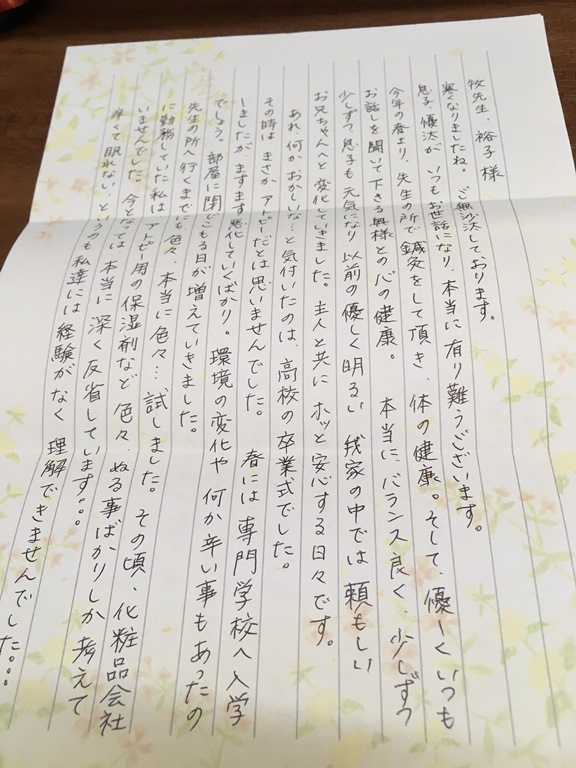 牧先生、裕子様
寒くなりましたね。ご無沙汰しております。
息子 慎汰が いつもお世話になり、本当に有り難うございます。
今年の春より、先生の所で鍼灸をして頂き、体の健康。そして、優しくいつも
お話しを聞いて下さる奥様との心の健康。 本当にバランス良く、少しずつ
少しずつ息子も元気になり以前の優しく明るい 我家の中では頼もしい
お兄ちゃんへと変化していきました。主人と共に ホッと安心する日々です。
あれ、何かおかしいな…と気付いたのは、高校の卒業式でした。
その時は まさか アトピーだとは思いませんでした。 春には専門学校へ入学
しましたが、ますます悪化していくばかり。 環境の変化や 何か辛い事もあったの
でしょう。部屋に閉じこもる日が増えていきました。
先生の所へ行くまでにも色々、本当に色々…試しました。その頃、化粧品会社
に勤務していた私は アトピー用の保湿剤など色々、ぬる事ばかりしか考えて
いませんでした。今となっては 本当に深く反省しています。。。
痒くて眠れない、というのも私達には経験がなく 理解できませんでした。。。